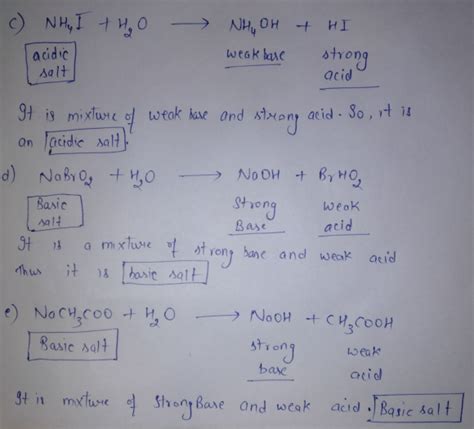 c) NH₄I + H₂O → NH₄OH + HI
acidic salt weak base strong acid
It is mixture of weak base and strong acid. So, it is
an acidic salt.
d) NaBrO₂ + H₂O → NaOH + BrHO₂
Basic salt Strong Base weak acid
It is a mixture of strong base and weak acid
Thus it is basic salt
e) NaCH₃COO + H₂O → NaOH + CH₃COOH
Basic salt strong base weak acid
It is mixture of Strong Base and weak acid. Basic salt